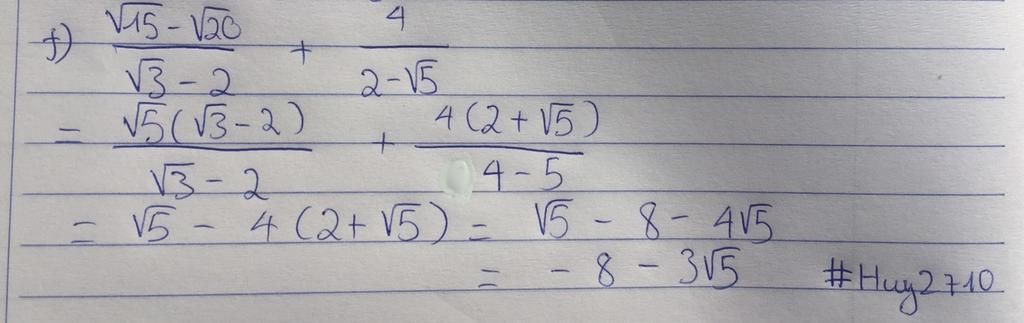 f) (√15 - √20)/(√3 - 2) + 4/(2 - √5)
= √5(√3 - 2)/(√3 - 2) + 4(2 + √5)/(4 - 5)
= √5 - 4(2 + √5) = √5 - 8 - 4√5
= - 8 - 3√5 #Huy2710